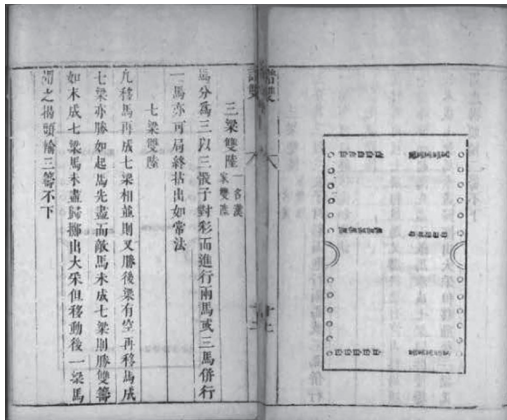 三梁雙陸一名漢
家雙陸
馬分爲三以三骰子對彩而進行兩馬或三馬併行
一馬亦可局終拈出如常法
七梁雙陸
凡移馬再成七梁相並則又勝後梁有空再移馬成
七梁亦勝如起馬先盡而敵馬未成七梁則勝雙籌
如未成七梁馬未盡歸擲出大采但移動後一梁馬
謂之揚頭輸三籌不下